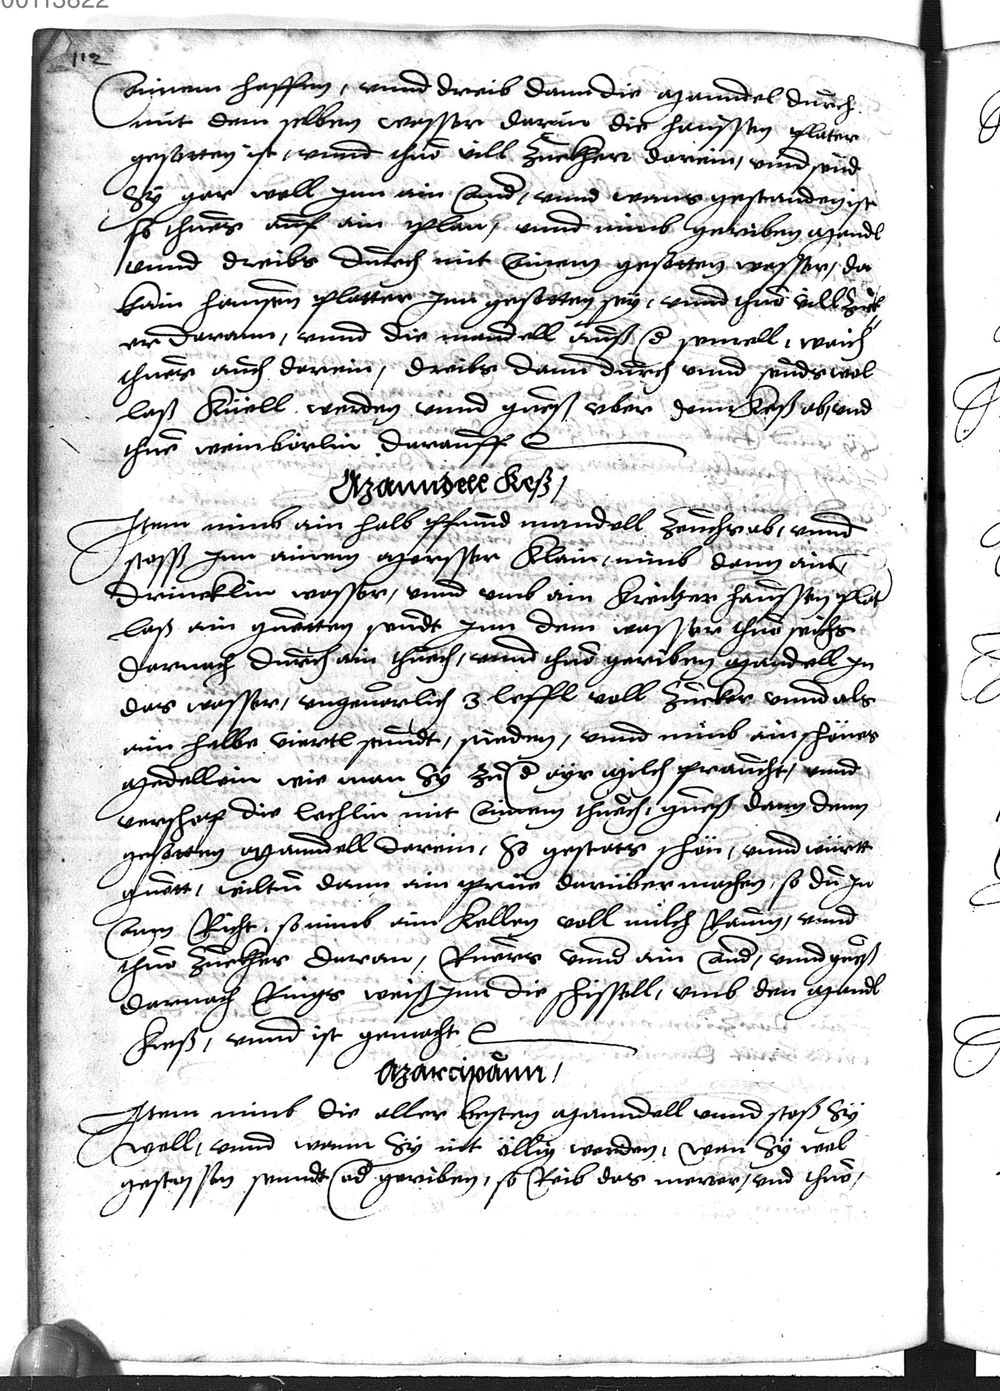 00113822
112
Ainem haffen, vnnd dreib dann die Manndel durch
mit dem selben wasser darin die haussen plater
gesotten ist, vnnd thuo vill Zuckher darein, vnnd seud
Sy gar woll Inn ain And, vnnd wans gestanden ist
so thuers auf ain plan, vnnd nimb geriben Mandl
vnnd dreibs durch mit Ainem gesotten wasser, da
kain haussen platter Inn gesotten sey, vnnd thuo vill Zuck
er daran, vnnd die mandell auß d semell, waich
thuers auch darein, dreibs dann durch vnnd seuds wol
laß Küell werden vnnd gueß vber denn Keß ab, vnd
thue weinbörlin darauff
Manndell Keß,
Item nimb ain halb pfunnd mandell Zeuchs ab, vnnd
stoss Inn ainem Mersser Klain, nimb dann ain
drincklin wasser, vnnd vmb ain Kreitzer haussen plat
laß ain guetten seudt Inn dem wasser thuo seichs
darnach durch ain thuech, vnnd thuo geriben Mandell In
das wasser, vngeuorlich 3 leffl voll Zucker vnnd als
ain halbe viertl stundt, sieden, vnnd nimb ain schönes
Medellein wie man Sy Zu d ayr Milch praucht, vnnd
verschop die lechlin mit Ainem thuech, gueß dann denn
gesotten Manndell darein, So gestets schön, vnnd württ
guett, wiltu dann ain prüe darüber machen, so du In
Anricht, so nimb ain Kellen voll milch Raum, vnnd
thuo Zuckher daran, Ruers vnnd ain And, vnnd gueß
darnach Rings weiß Inn die schissell, vmb den Mandl
Keß, vnnd ist gemacht
Marcipann,
Item nimb die aller besten Manndell vnnd stoß Sy
woll, vnnd wann Sy nit öllig werden, wan Sy wol
gestossen seundt od geriben, so Reib das merer, vnd thuo,